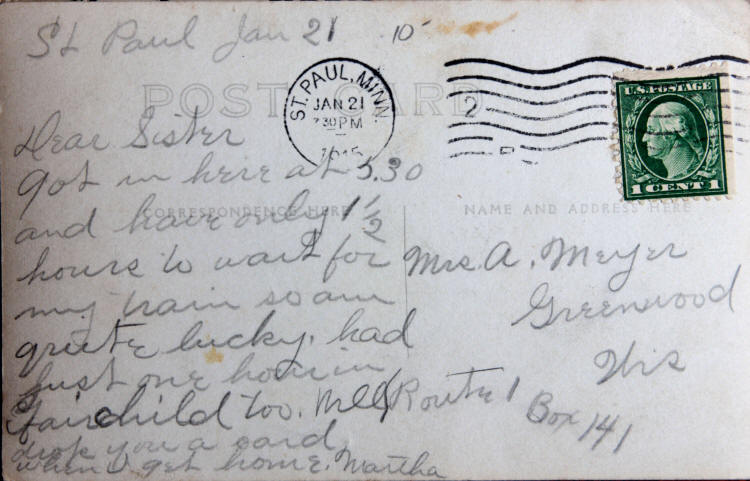 St Paul Jan 21 15
POST CARD
ST. PAUL, MINN.
JAN 21
7 30 PM
1915
2
U.S. POSTAGE
1 CENT 1
Dear Sister
Got in here at 5.30
CORRESPONDENCE HERE
and have only 1 1/2
hours to wait for
my train so am
quite lucky. had
just one hour in
Fairchild too. Will
drop you a card
when I get home. Martha
NAME AND ADDRESS HERE
Mrs. A. Meyer
Greenwood
Wis
Route 1
Box 141